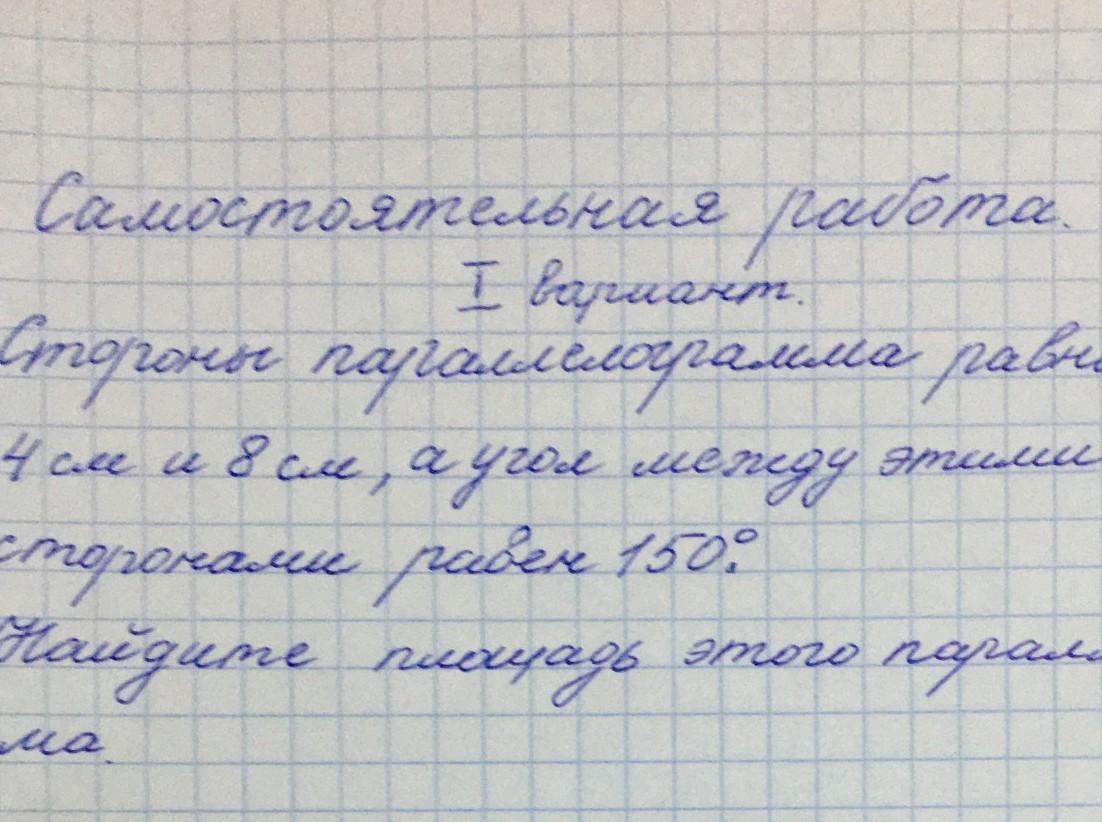 Самостоятельная работа.
I вариант.
Стороны параллелограмма равны
4 см и 8 см, а угол между этими
сторонами равен 150°.
Найдите площадь этого парал
ма.